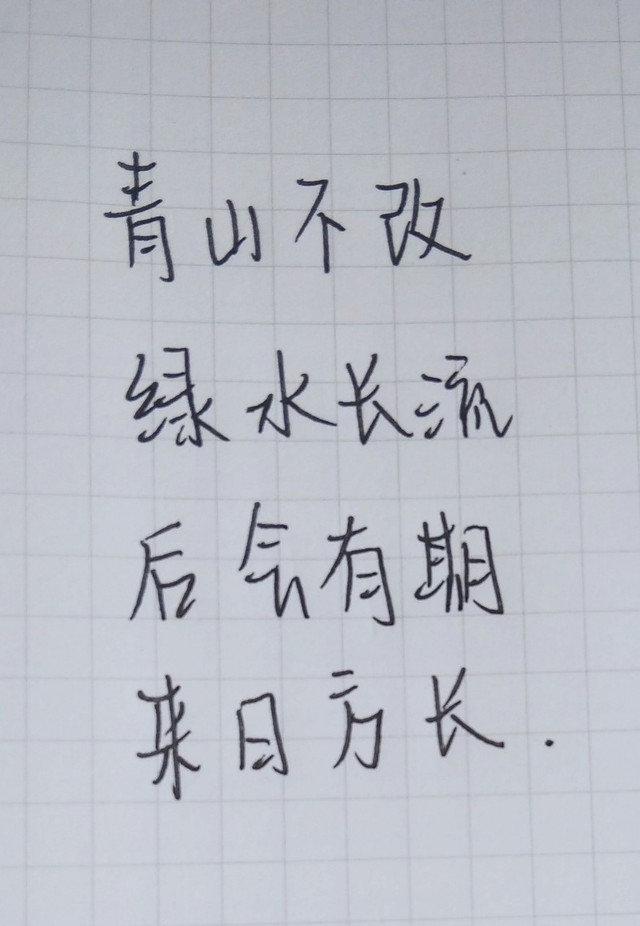 青山不改
绿水长流
后会有期
来日方长.